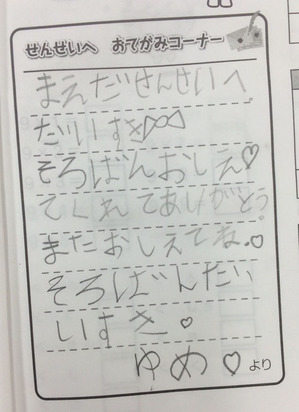 せんせいへ おてがみコーナー
まえだせんせいへ
だいすき
そろばんおしえ♡
てくれてありがとう
またおしえてね。♡
そろばんだい
いすき♡
ゆめ♡より